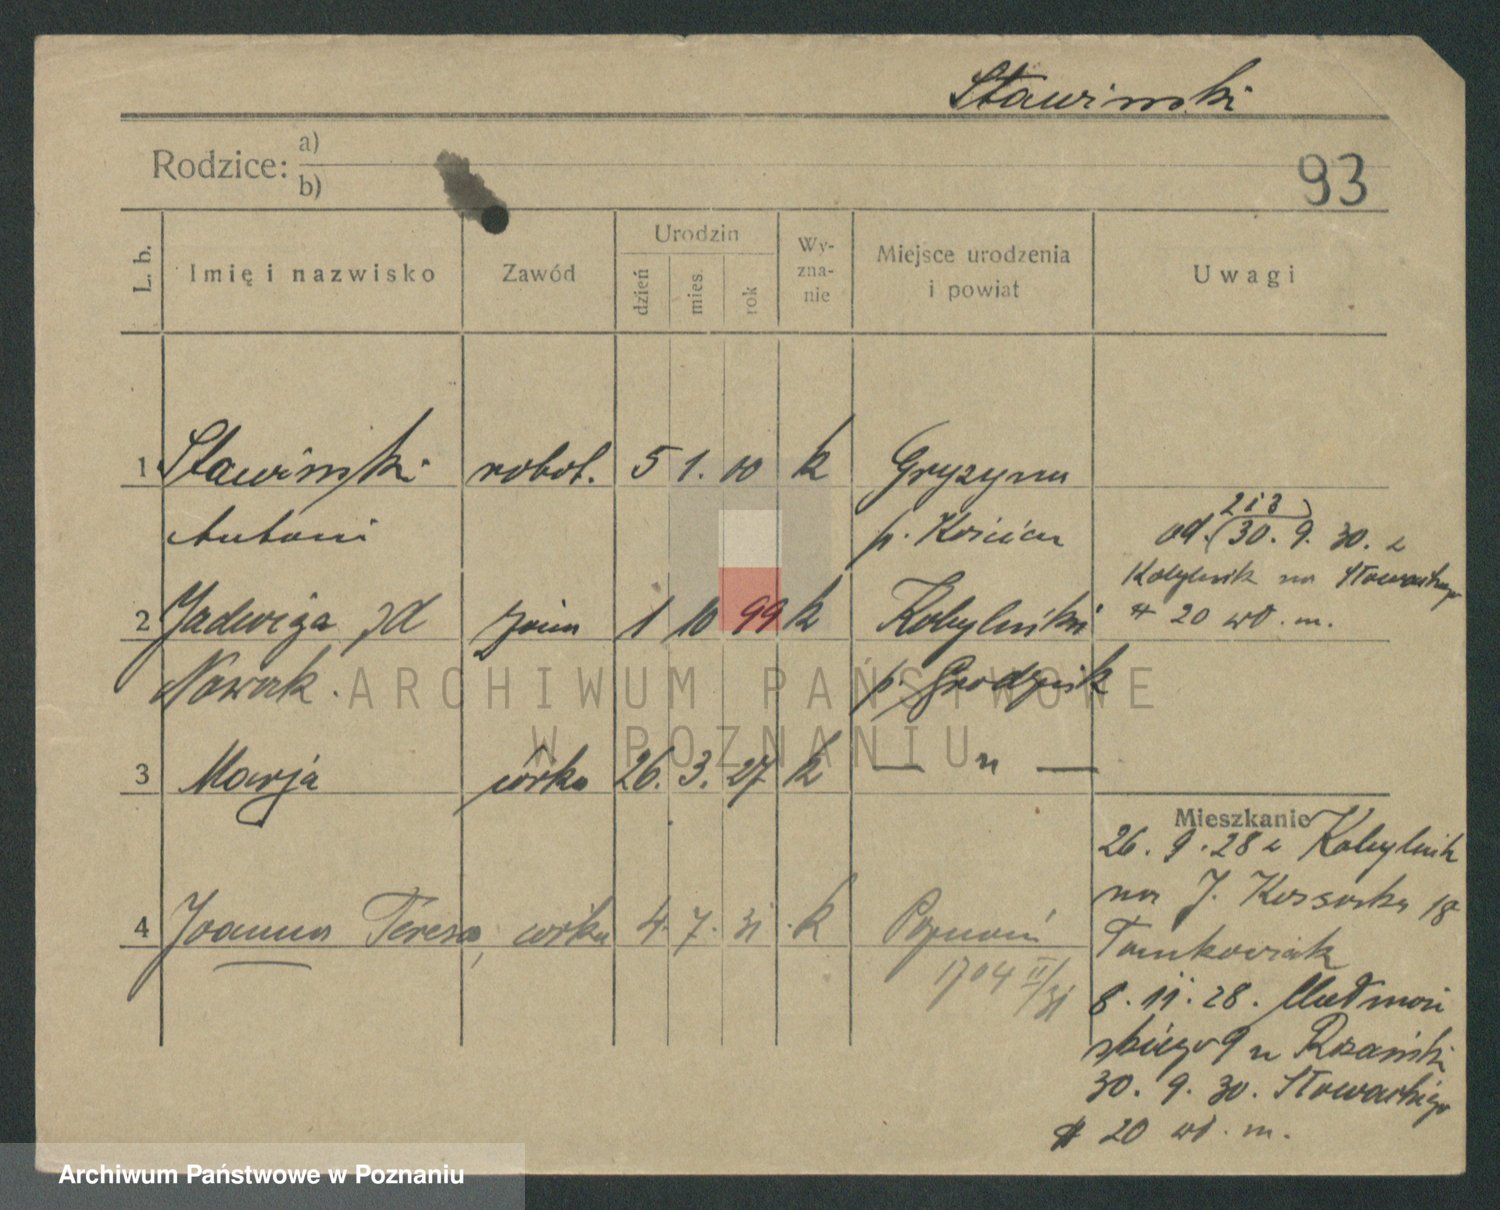 Stawinski
Rodzice: a)
b)
93
L. b. Imię i nazwisko Zawód Urodzin dzień mies. rok Wy-zna-nie Miejsce urodzenia i powiat Uwagi
1 Stawinski robot. 5 1. 00 k Gryzyna
Antoni p. Kościan
213
od. (30. 9. 30. z
Kobylnik na Słowackiego
20 wł. m.
2 Jadwiga zd żona 1 10 99 k Kobylniki
Nowak. p. Grodzisk
ARCHIWUM PAŃSTWOWE
W POZNANIU
3 Marja córka 26. 3. 27 k — " —
Mieszkanie
26. 9. 28 z Kobylnik
na J. Kossaka 18
Tomkowiak
4 Joanna Teresa, córka 4. 7. 31. k Poznań
1704 II/31
8. 11. 28.
skiego 9 u
30. 9. 30. Słowackiego
20 wł. m.
Archiwum Państwowe w Poznaniu